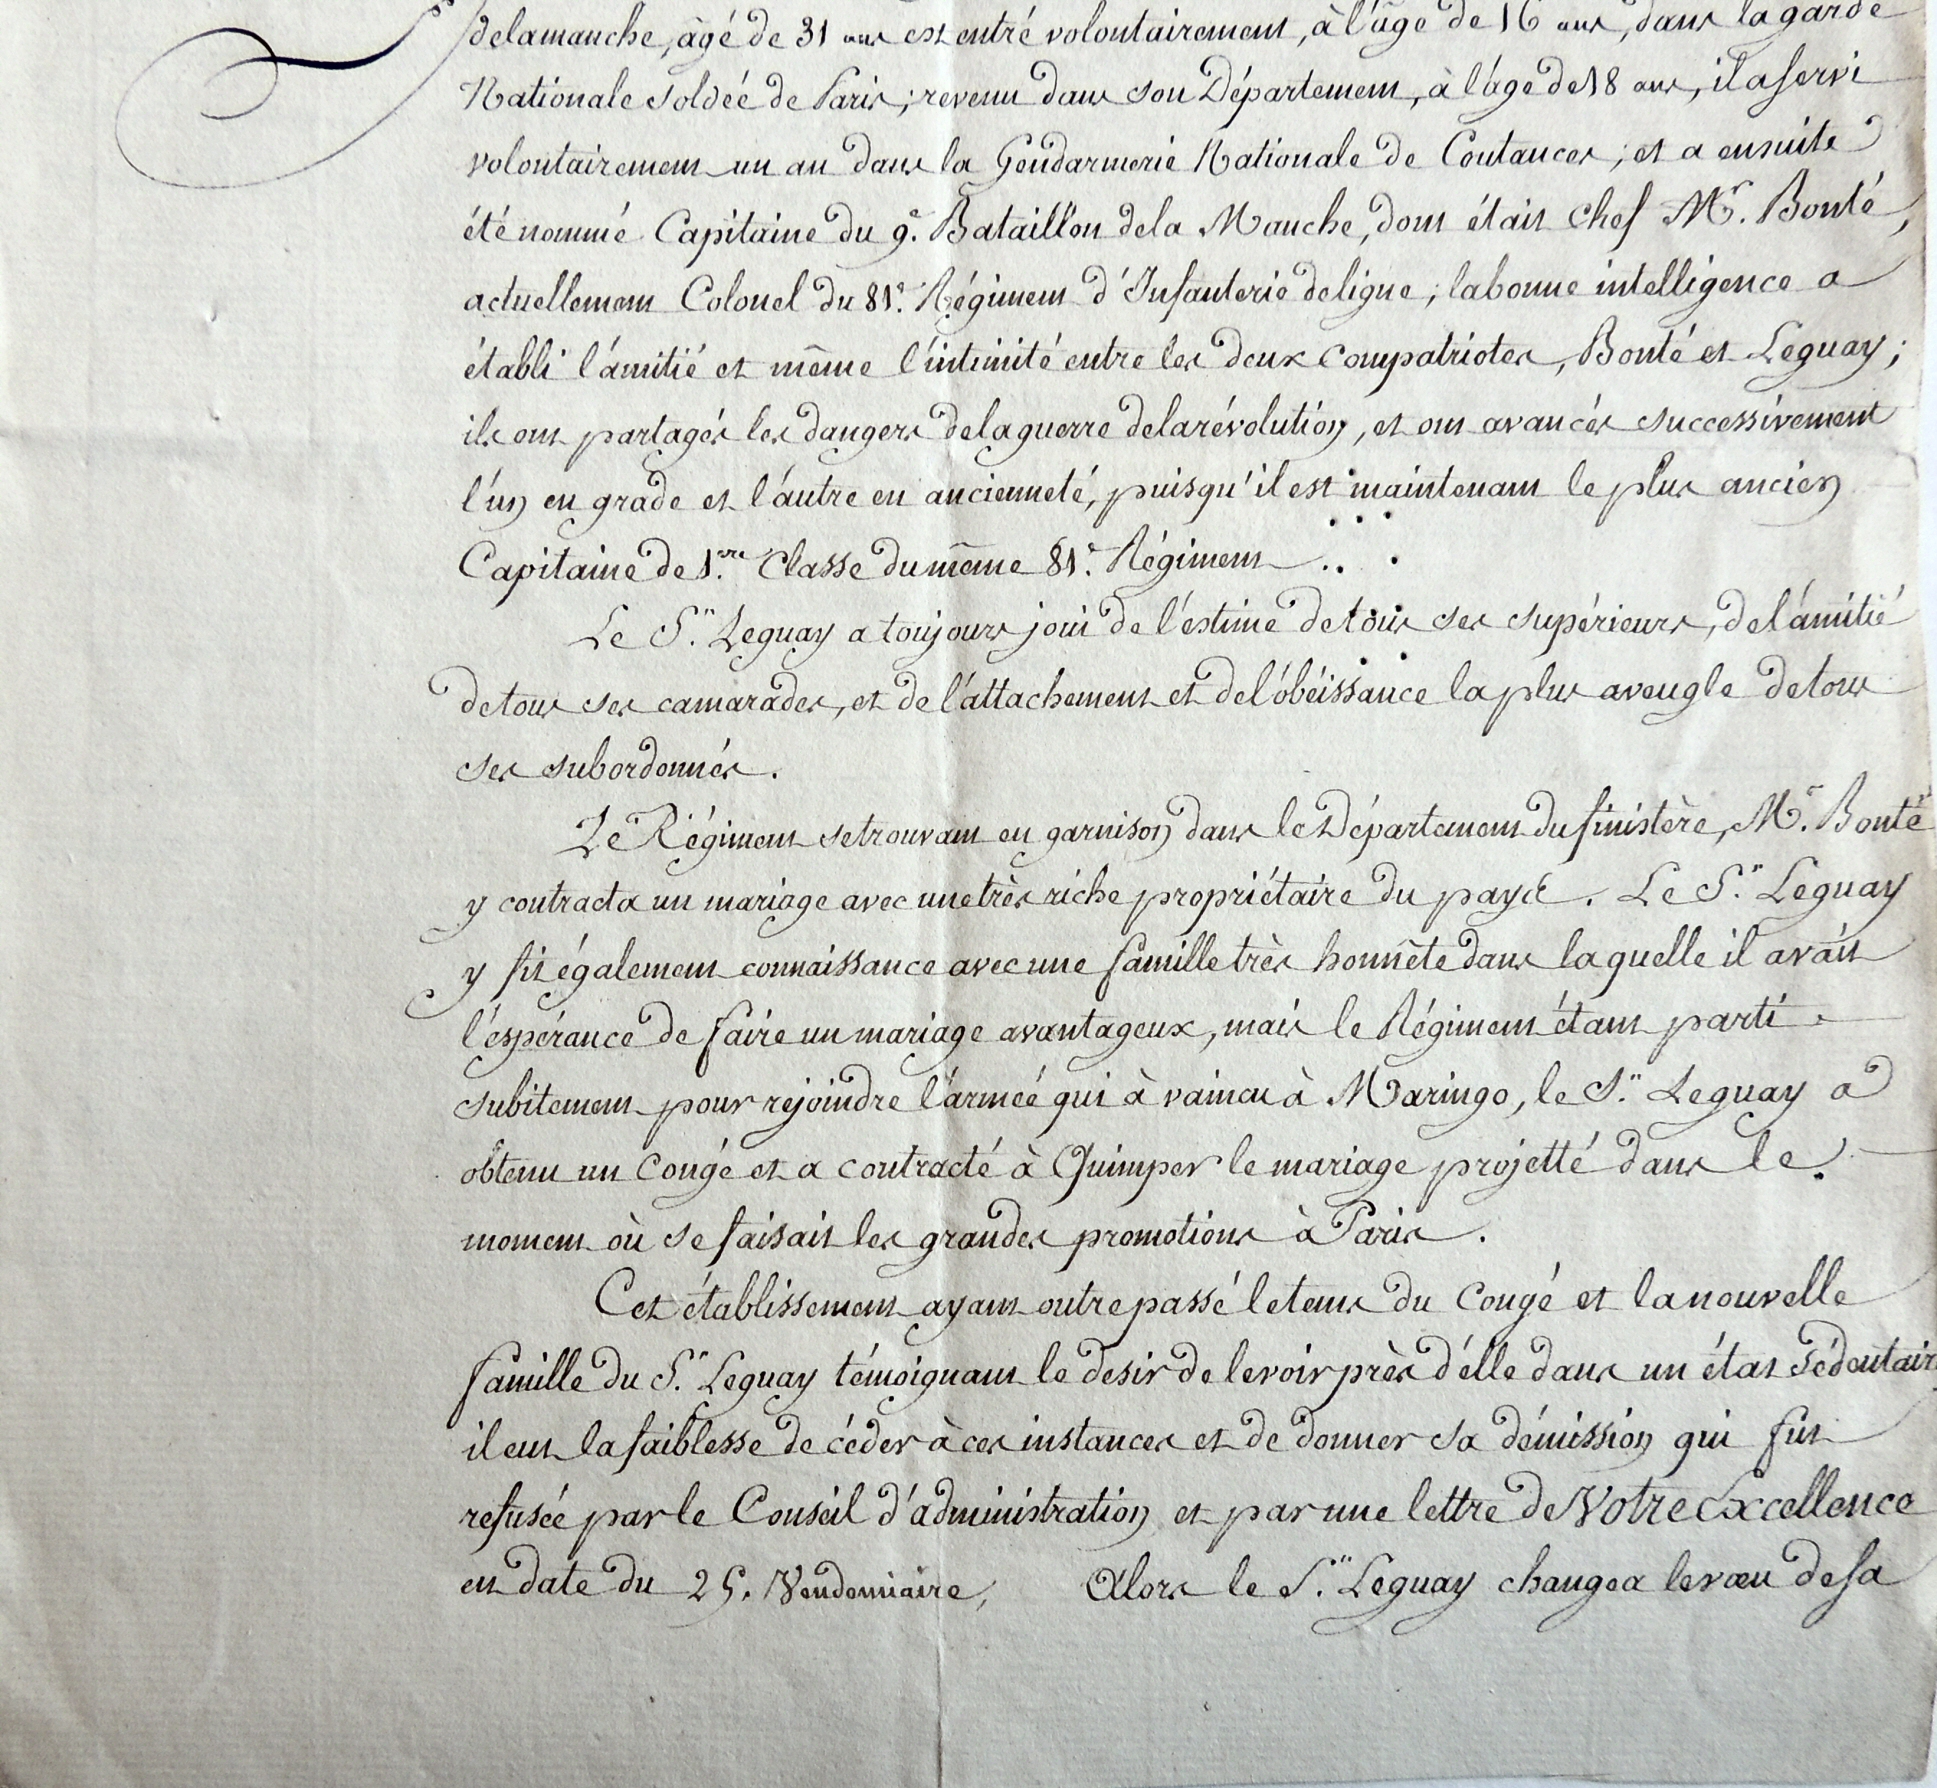 delamanche, âgé de 31 ans est entré volontairement, à l'âge de 16 ans, dans la garde
Nationale soldéé de Paris; revenu dans son Département, à l'âge de 18 ans, il a servi
volontairement un an dans la Gendarmerie Nationale de Coutances; et a ensuite
été nommé Capitaine du 9.e Bataillon de la Manche, dont était chef Mr. Bonté,
actuellement Colonel du 81.e Régiment d'Infanterie de ligne; la bonne intelligence a
établi l'amitié et même l'intimité entre les deux compatriotes, Bonté et Leguay;
ils ont partagés les dangers de la guerre de la révolution, et ont avancés successivement
l'un en grade et l'autre en ancienneté, puisqu'il est maintenant le plus ancien
Capitaine de 1.ere Classe du même 81.e Régiment
Le S.r Leguay a toujours joui de l'estime de tous ses supérieurs, de l'amitié
de tous ses camarades, et de l'attachement et de l'obéissance la plus aveugle de tous
ses subordonnés.
Le Régiment se trouvant en garnison dans le Département du finistère, Mr. Bonté
y contracta un mariage avec une très riche propriétaire du pays. Le S.r Leguay
y fit également connaissance avec une famille très honnête dans laquelle il avait
l'espérance de faire un mariage avantageux, mais le Régiment étant parti
subitement pour rejoindre l'arméé qui à vaincu à Maringo, le S.r Leguay a
obtenu un Congé et a contracté à Quimper le mariage projetté dans le
moment où se faisait les grandes promotions à Paris.
Cet établissement ayant outrepassé le tems du Congé et la nouvelle
famille du S.r Leguay témoignant le desir de le voir près d'elle dans un état sédentair
il eut la faiblesse de céder à ces instances et de donner sa démission qui fut
refusée par le Conseil d'administration et par une lettre de Votre Excellence
en date du 25. Vendemiaire, Alors le S.r Leguay changea le vœu de sa